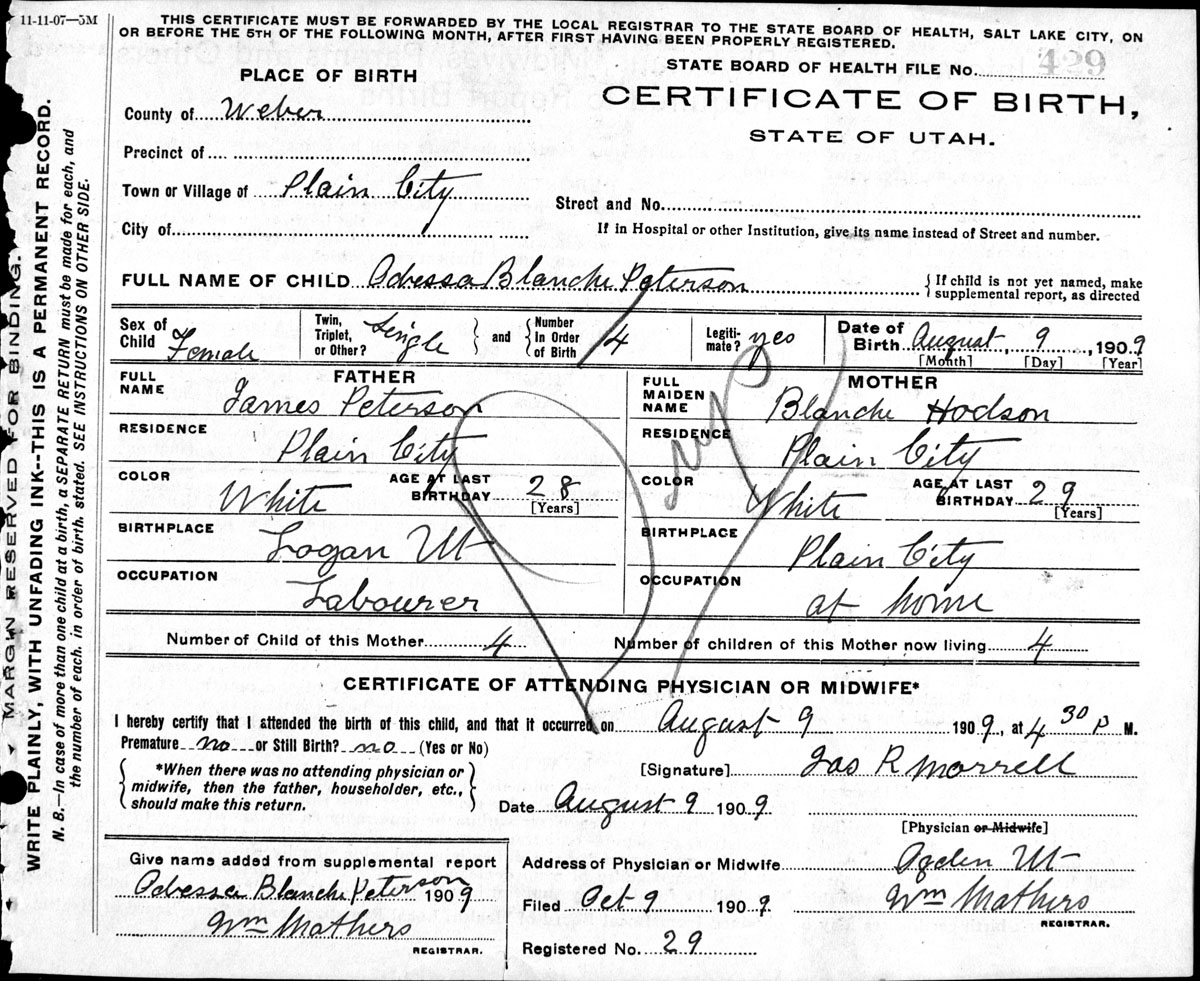 11-11-07—5M
THIS CERTIFICATE MUST BE FORWARDED BY THE LOCAL REGISTRAR TO THE STATE BOARD OF HEALTH, SALT LAKE CITY, ON
OR BEFORE THE 5TH OF THE FOLLOWING MONTH, AFTER FIRST HAVING BEEN PROPERLY REGISTERED.
PLACE OF BIRTH
STATE BOARD OF HEALTH FILE No. 429
CERTIFICATE OF BIRTH,
STATE OF UTAH.
County of Weber
Precinct of
Town or Village of Plain City
Street and No.
City of
If in Hospital or other Institution, give its name instead of Street and number.
FULL NAME OF CHILD Odessa Blanche Peterson
If child is not yet named, make
supplemental report, as directed
Sex of Child Female
Twin, Triplet, or Other? Single and Number In Order of Birth 4
Legitimate? yes
Date of Birth August 9, 1909
[Month] [Day] [Year]
FATHER
FULL NAME James Peterson
RESIDENCE Plain City
COLOR White AGE AT LAST BIRTHDAY 28
[Years]
BIRTHPLACE Logan Ut
OCCUPATION Labourer
MOTHER
FULL MAIDEN NAME Blanche Hodson
RESIDENCE Plain City
COLOR White AGE AT LAST BIRTHDAY 29
[Years]
BIRTHPLACE Plain City
OCCUPATION at home
Number of Child of this Mother 4 Number of children of this Mother now living 4
CERTIFICATE OF ATTENDING PHYSICIAN OR MIDWIFE*
I hereby certify that I attended the birth of this child, and that it occurred on August 9 1909, at 4 30 P M.
Premature no or Still Birth? no (Yes or No)
*When there was no attending physician or
midwife, then the father, householder, etc.,
should make this return.
[Signature] Jas R Morrell
Date August 9 1909
[Physician or Midwife]
Give name added from supplemental report
Odessa Blanche Peterson 1909
Wm Mathers
REGISTRAR.
Address of Physician or Midwife Ogden Ut
Filed Oct 9 1909 Wm Mathers
REGISTRAR.
Registered No. 29
MARGIN RESERVED FOR BINDING.
WRITE PLAINLY, WITH UNFADING INK--THIS IS A PERMANENT RECORD.
N. B.—In case of more than one child at a birth, a SEPARATE RETURN must be made for each, and
the number of each, in order of birth, stated. SEE INSTRUCTIONS ON OTHER SIDE.